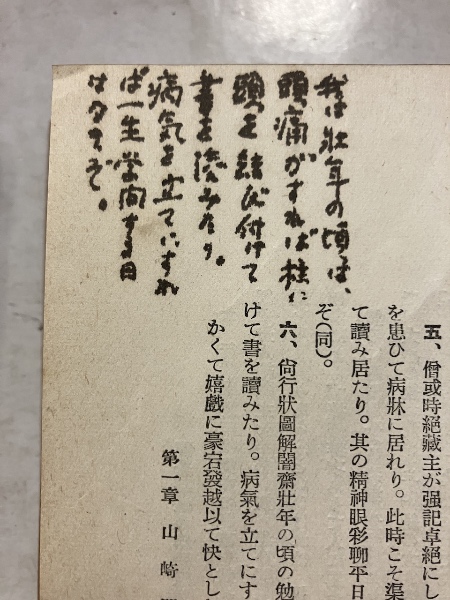 我は壯年の頃は、
頭痛がすれば柱に
頭を結び付けて
書を読みたり。
病氣を立てにすれ
ば一生学问する日
はタヽぞ。
五、僧或時絕藏主か强記卓絕にし
を患ひて病牀に居れり。此時こそ渠
て讀み居たり。其の精神眼彩聊平日
ぞ(同)。
六、尙行狀圖解闇齋壯年の頃の勉
けて書を讀みたり。病氣を立てにす
かくて嬉戲に豪宕發越以て快とし
第一章 山崎